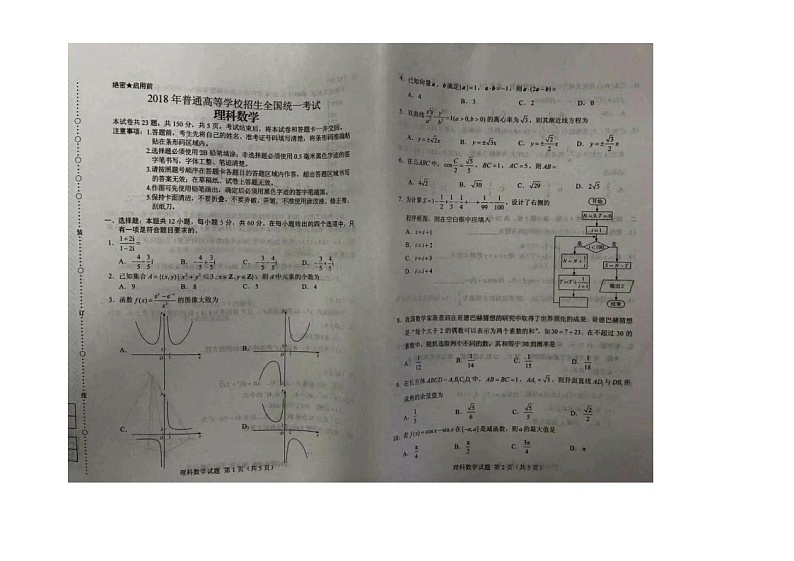 绝密★启用前
2018 年普通高等学校招生全国统一考试
理科数学
本试卷共 23 题，共 150 分，共 5 页。考试结束后，将本试卷和答题卡一并交回。
注意事项：1.答题前，考生先将自己的姓名、准考证号码填写清楚，将条形码准确粘
贴在条形码区域内。
2.选择题必须使用 2B 铅笔填涂；非选择题必须使用 0.5 毫米黑色字迹的签
字笔书写，字体工整、笔迹清楚。
3.请按照题号顺序在答题卡各题目的答题区域内作答，超出答题区域书写
的答案无效；在草稿纸、试卷上答题无效。
4.作图可先使用铅笔画出，确定后必须用黑色字迹的签字笔描黑。
5.保持卡面清洁，不要折叠，不要弄破、弄皱，不准使用涂改液、修正带、
刮纸刀。
一、选择题：本题共 12 小题，每小题 5 分，共 60 分。在每小题给出的四个选项中，只
有一项是符合题目要求的。
1. (1+2i)/(1−2i)=
A. −4/5−3/5i B. −4/5+3/5i C. −3/5−4/5i D. −3/5+4/5i
2. 已知集合 A={(x,y)|x²+y²≤3,x∈Z,y∈Z}，则 A 中元素的个数为
A. 9 B. 8 C. 5 D. 4
3. 函数 f(x)=(eˣ−e⁻ˣ)/x² 的图像大致为
A. B.
C. D.
理科数学试题 第 1 页（共 5 页）
4. 已知向量 a，b 满足|a|=1，a·b=−1，则 a·(2a−b)=
A. 4 B. 3 C. 2 D. 0
5. 双曲线 x²/a²−y²/b²=1(a>0,b>0) 的离心率为 √3，则其渐近线方程为
A. y=±√2x B. y=±√3x C. y=±√2/2x D. y=±√3/2x
6. 在△ABC 中，cos C/2=√5/5，BC=1，AC=5，则 AB=
A. 4√2 B. √30 C. √29 D. 2√5
7. 为计算 S=1−1/2+1/3−1/4+…+1/99−1/100，设计了右侧的
程序框图，则在空白框中应填入
A. i=i+1
B. i=i+2
C. i=i+3
D. i=i+4
开始
N=0,T=0
i=1
是 i<100 否
N=N+1/i
S=N−T
T=T+1/(i+1)
输出S
结束
8. 我国数学家陈景润在哥德巴赫猜想的研究中取得了世界领先的成果。哥德巴赫猜想
是“每个大于 2 的偶数可以表示为两个素数的和”，如 30=7+23。在不超过 30 的
素数中，随机选取两个不同的数，其和等于 30 的概率是
A. 1/12 B. 1/14 C. 1/15 D. 1/18
9. 在长方体 ABCD−A₁B₁C₁D₁ 中，AB=BC=1，AA₁=√3，则异面直线 AD₁ 与 DB₁ 所
成角的余弦值为
A. 1/5 B. √5/6 C. √5/5 D. √2/2
10. 若 f(x)=cosx−sinx 在[−a,a]是减函数，则 a 的最大值是
A. π/4 B. π/2 C. 3π/4 D. π
理科数学试题 第 2 页（共 5 页）